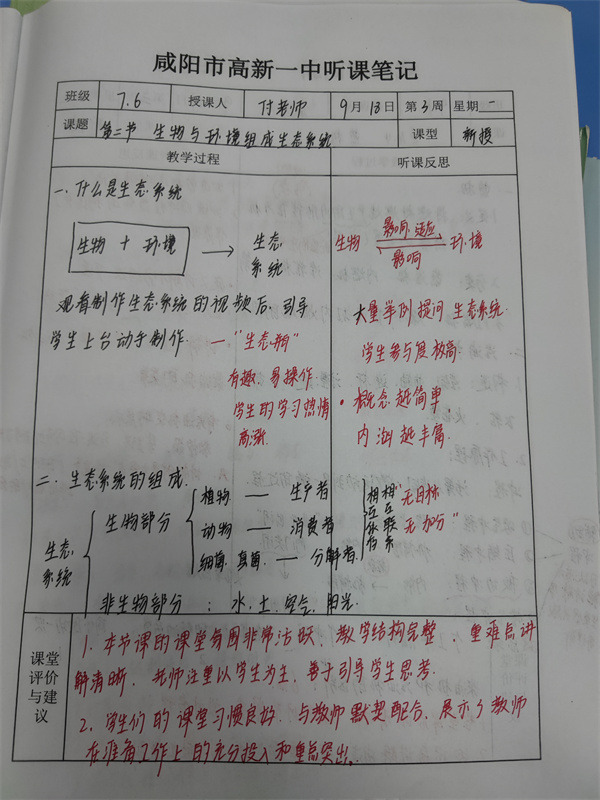 咸阳市高新一中听课笔记
班级 7.6 授课人 付老师 9月18日 第3周 星期一
课题 第二节 生物与环境组成生态系统 课型 新授
教学过程 听课反思
一.什么是生态系统
生物 + 环境 → 生态系统
生物 影响、适应 影响 环境
观看制作生态系统的视频后,引导
学生上台动手制作 — "生态瓶"
有趣、易操作
学生的学习热情
高涨
大量举例提问 生态系统
学生参与度极高.
·概念越简单
内涵越丰富
二.生态系统的组成.
生态系统
生物部分
植物 — 生产者
动物 — 消费者
细菌、真菌 — 分解者
相互依存
相互联系
"无目标
无加分"
非生物部分:水、土、空气、阳光.
课堂评价与建议
1.本节课的课堂氛围非常活跃,教学结构完整、重难点讲
解清晰,老师注重以学生为主,善于引导学生思考.
2.学生们的课堂习惯良好,与教师默契配合,展示了教师
在准备工作上的充分投入和重点突出。